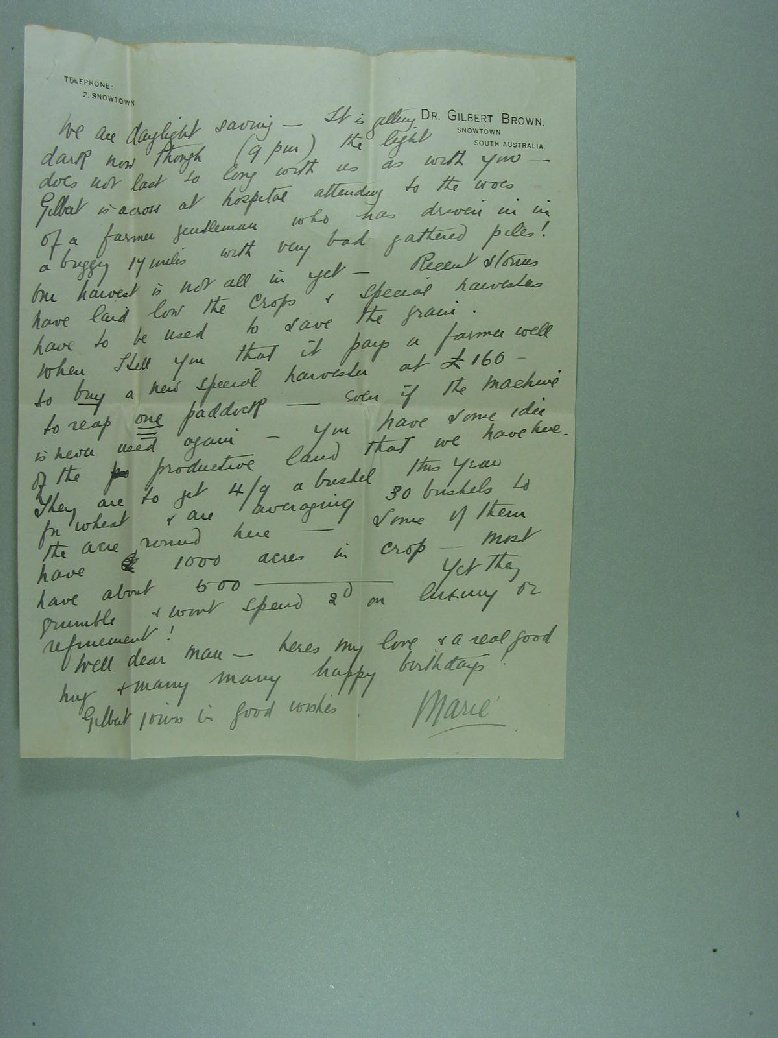 TELEPHONE:
2. SNOWTOWN
DR. GILBERT BROWN.
SNOWTOWN
SOUTH AUSTRALIA.
We are daylight saving — It is getting
dark now though (9 pm) the light
does not last so long with us as with you —
Gilbert is across at hospital attending to the woes
of a farmer gentleman who has driven in in
a buggy 17 miles with very bad gathered piles!
Our harvest is not all in yet — Recent storms
have laid low the crops & special harvesters
have to be used to save the grain.
When I tell you that it pays a farmer well
to buy a new special harvester at £160 —
to reap one paddock — even if the machine
is never used again — you have some idea
of the productive land that we have here.
They are to get 4/9 a bushel this year
for wheat & are averaging 30 bushels to
the acre round here — Some of them
have 1000 acres in crop — most
have about 500 — Yet they
grumble & wont spend 2d on luxury or
refinement!
Well dear man — heres my love & a real good
hug & many many happy birthdays!
Gilbert joins in good wishes
Marie